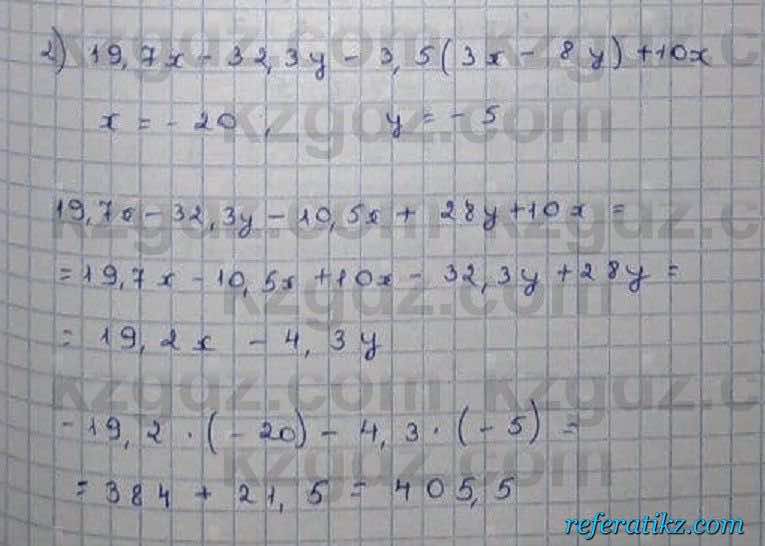 2) 19,7x - 32,3y - 3,5(3x - 8y) + 10x
x = - 20, y = - 5
19,7x - 32,3y - 10,5x + 28y + 10x =
= 19,7x - 10,5x + 10x - 32,3y + 28y =
= 19,2x - 4,3y
- 19,2 · (- 20) - 4,3 · (- 5) =
= 384 + 21,5 = 405,5
referatikz.com